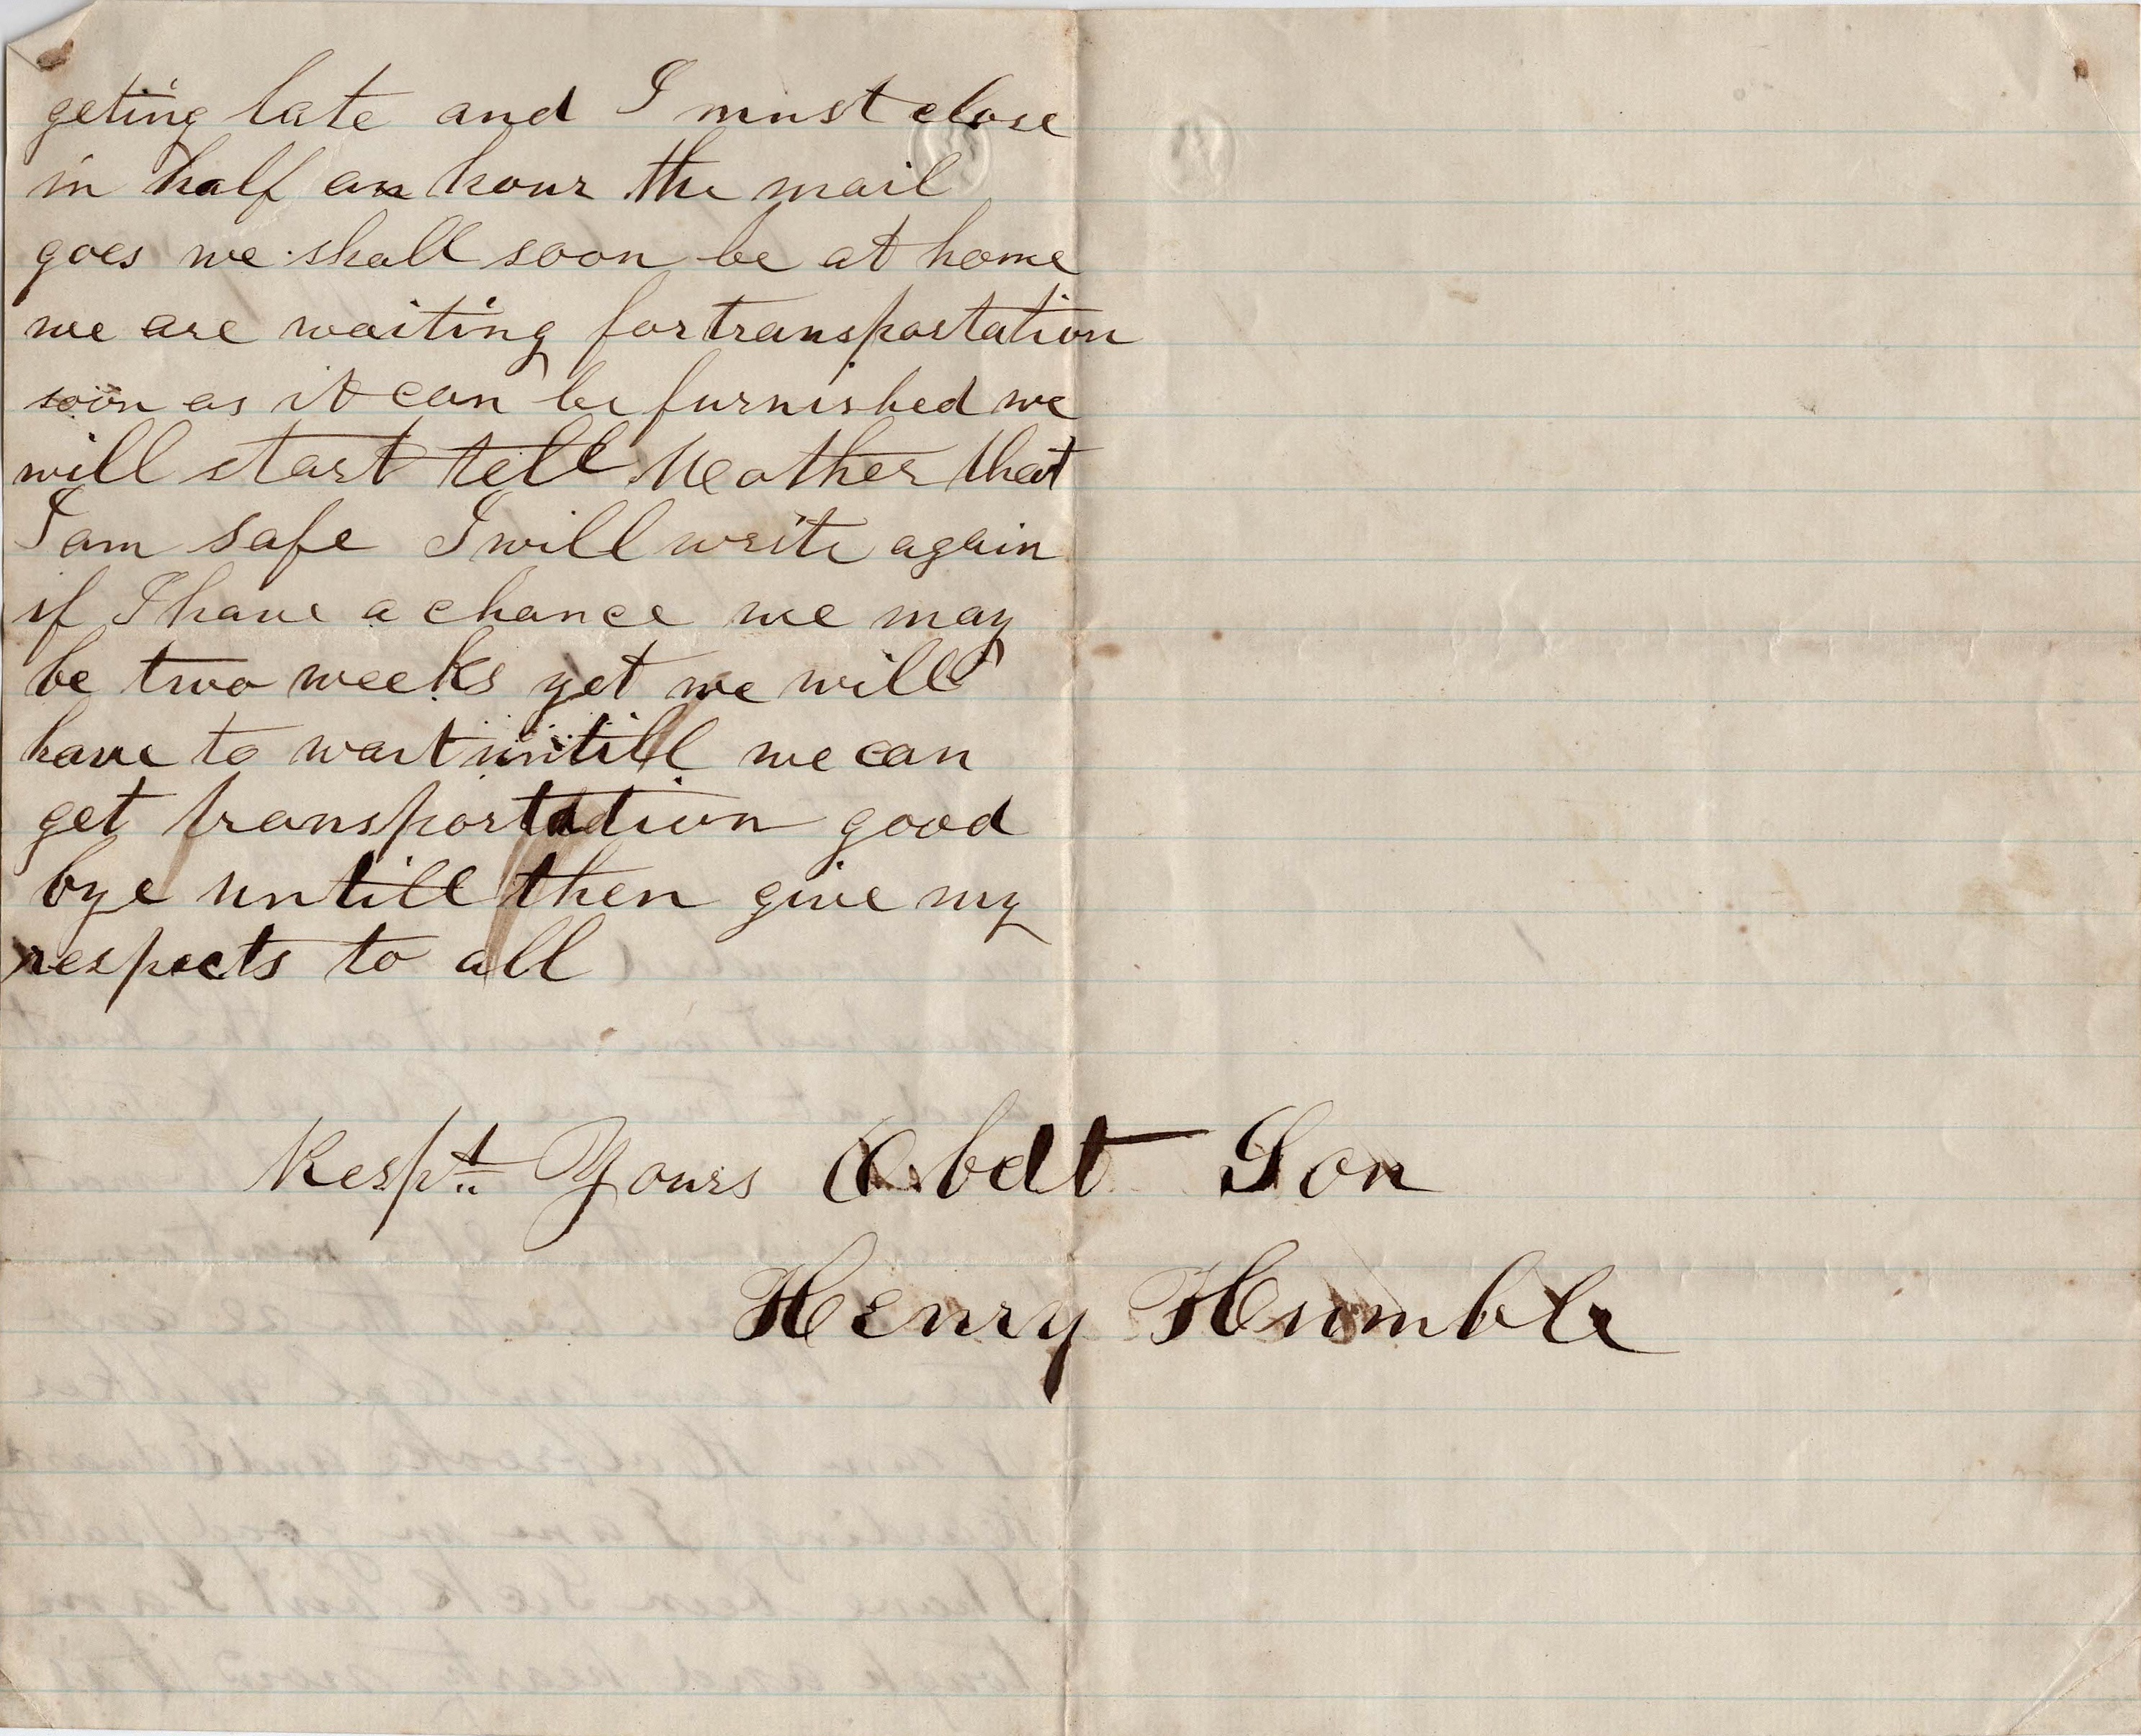 geting late and I must close
in half an hour the mail
goes we shall soon be at home
we are waiting for transportation
soon as it can be furnished we
will start tell Mother that
I am safe I will write again
if I have a chance we may
be two weeks yet we will
have to wait untill we can
get transportation good
bye untill then give my
respects to all
Respt Yours Obdt Son
Henry Humble